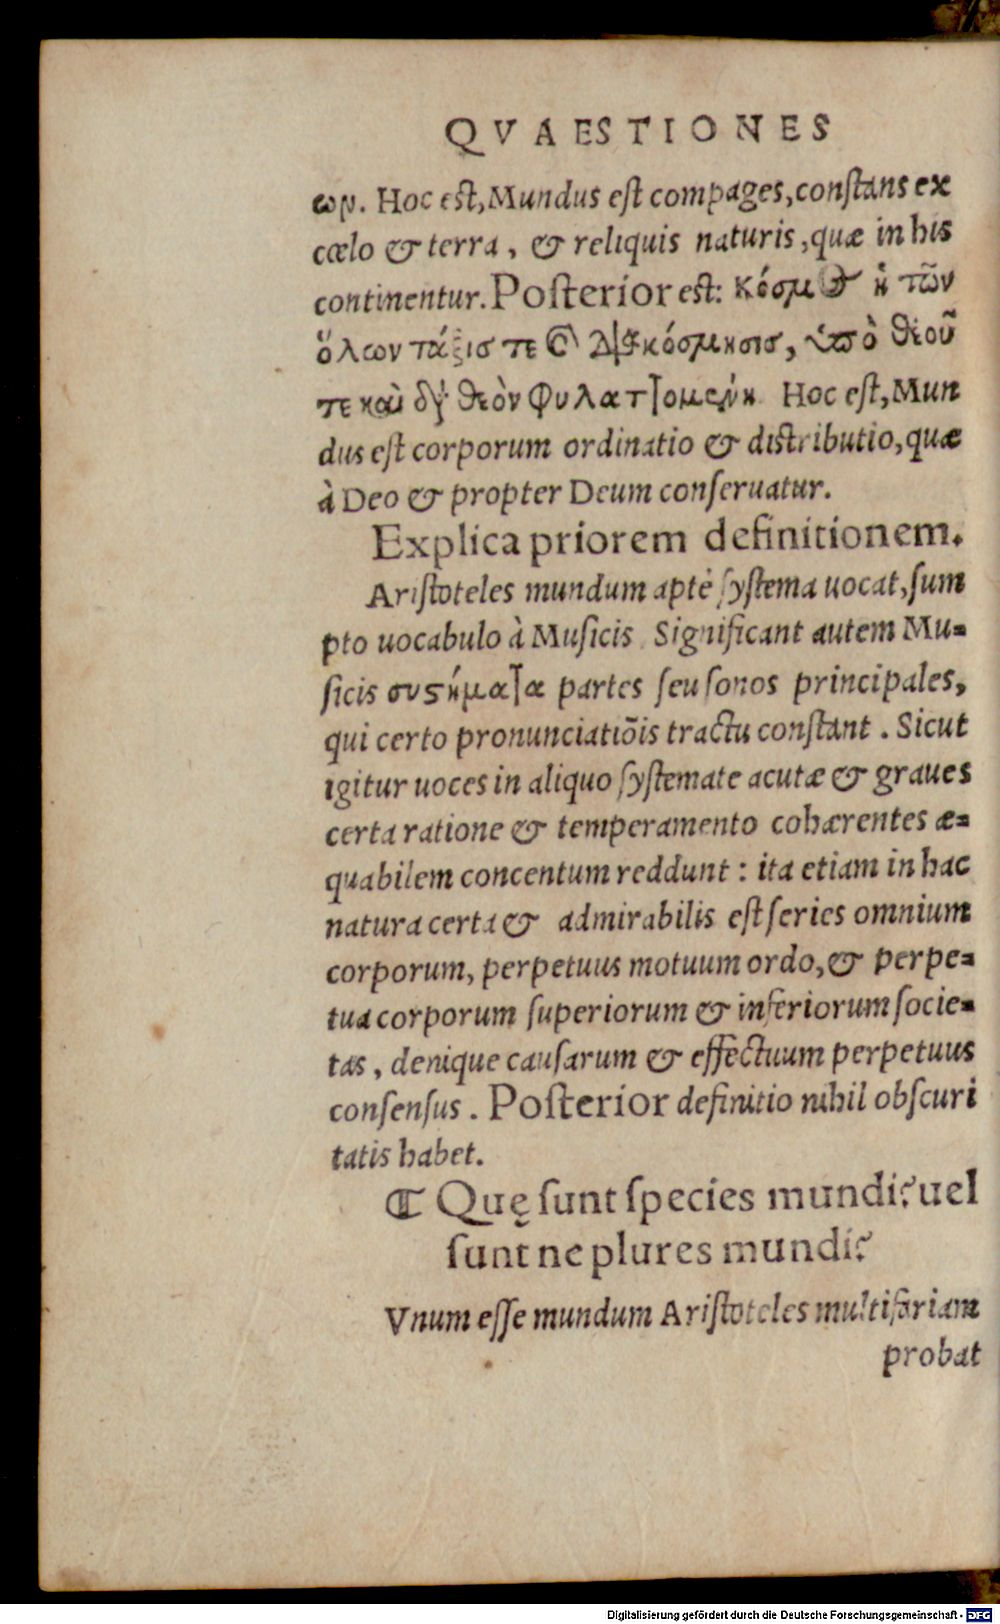 QVAESTIONES
ων. Hoc est, Mundus est compages, constans ex
cœlo & terra, & reliquis naturis, quæ in his
continentur. Posterior est: κόσμος ἡ τῶν
ὅλων τάξις τε καὶ διακόσμησις, ὑπὸ θεοῦ
τε καὶ διὰ θεὸν φυλαττομένη. Hoc est, Mun
dus est corporum ordinatio & distributio, quæ
à Deo & propter Deum conseruatur.
Explica priorem definitionem.
Aristoteles mundum aptè systema uocat, sum
pto uocabulo à Musicis. Significant autem Mu-
sicis συστήματα partes seu sonos principales,
qui certo pronunciatiõis tractu constant. Sicut
igitur uoces in aliquo systemate acutæ & graues
certa ratione & temperamento cohærentes æ-
quabilem concentum reddunt: ita etiam in hac
natura certa & admirabilis est series omnium
corporum, perpetuus motuum ordo, & perpe-
tua corporum superiorum & inferiorum socie-
tas, denique causarum & effectuum perpetuus
consensus. Posterior definitio nihil obscuri
tatis habet.
¶ Quę sunt species mundi? uel
sunt ne plures mundi?
Vnum esse mundum Aristoteles multifariam
probat
Digitalisierung gefördert durch die Deutsche Forschungsgemeinschaft - DFG